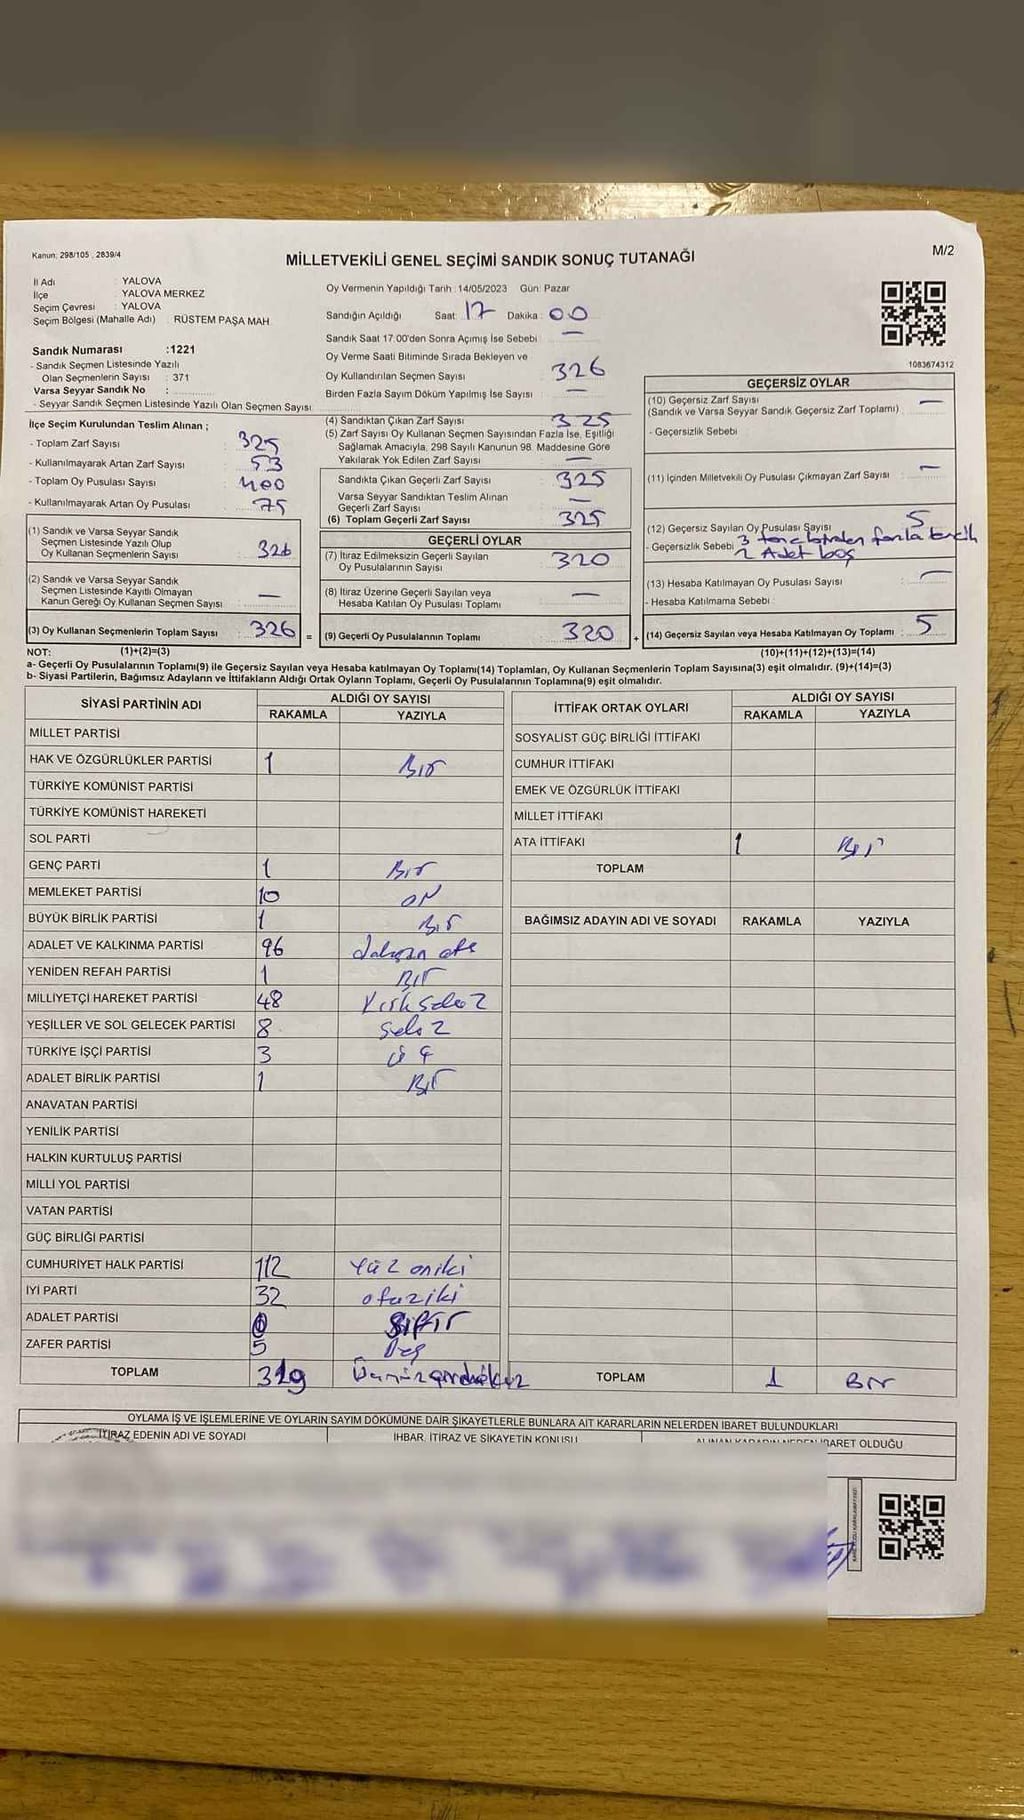 Kanun: 298/105 , 2839/4
MİLLETVEKİLİ GENEL SEÇİMİ SANDIK SONUÇ TUTANAĞI
M/2
İl Adı : YALOVA
İlçe : YALOVA MERKEZ
Seçim Çevresi : YALOVA
Seçim Bölgesi (Mahalle Adı) : RÜSTEM PAŞA MAH.
Sandık Numarası :1221
- Sandık Seçmen Listesinde Yazılı
Olan Seçmenlerin Sayısı : 371
Varsa Seyyar Sandık No :
- Seyyar Sandık Seçmen Listesinde Yazılı Olan Seçmen Sayısı:
İlçe Seçim Kurulundan Teslim Alınan ;
- Toplam Zarf Sayısı : 325
- Kullanılmayarak Artan Zarf Sayısı : 53
- Toplam Oy Pusulası Sayısı : 400
- Kullanılmayarak Artan Oy Pusulası : 75
(1) Sandık ve Varsa Seyyar Sandık
Seçmen Listesinde Yazılı Olup
Oy Kullanan Seçmenlerin Sayısı : 326
(2) Sandık ve Varsa Seyyar Sandık
Seçmen Listesinde Kayıtlı Olmayan
Kanun Gereği Oy Kullanan Seçmen Sayısı : —
(3) Oy Kullanan Seçmenlerin Toplam Sayısı : 326 =
Oy Vermenin Yapıldığı Tarih : 14/05/2023 Gün: Pazar
Sandığın Açıldığı Saat : 17 Dakika : 00
Sandık Saat 17.00'den Sonra Açımış İse Sebebi : —
Oy Verme Saati Bitiminde Sırada Bekleyen ve
Oy Kullandırılan Seçmen Sayısı : 326
Birden Fazla Sayım Döküm Yapılmış İse Sayısı : —
(4) Sandıktan Çıkan Zarf Sayısı : 325
(5) Zarf Sayısı Oy Kullanan Seçmen Sayısından Fazla İse, Eşitliği
Sağlamak Amacıyla, 298 Sayılı Kanunun 98. Maddesine Göre
Yakılarak Yok Edilen Zarf Sayısı : —
Sandıkta Çıkan Geçerli Zarf Sayısı : 325
Varsa Seyyar Sandıktan Teslim Alınan
Geçerli Zarf Sayısı : —
(6) Toplam Geçerli Zarf Sayısı : 325
GEÇERLİ OYLAR
(7) İtiraz Edilmeksizin Geçerli Sayılan
Oy Pusulalarının Sayısı : 320
(8) İtiraz Üzerine Geçerli Sayılan veya
Hesaba Katılan Oy Pusulası Toplamı : —
(9) Geçerli Oy Pusulalarının Toplamı : 320 +
1083674312
GEÇERSİZ OYLAR
(10) Geçersiz Zarf Sayısı : —
(Sandık ve Varsa Seyyar Sandık Geçersiz Zarf Toplamı)
- Geçersizlik Sebebi :
(11) İçinden Milletvekili Oy Pusulası Çıkmayan Zarf Sayısı : —
(12) Geçersiz Sayılan Oy Pusulası Sayısı : 5
- Geçersizlik Sebebi : 3 tane birden fazla tercih
2 Adet boş
(13) Hesaba Katılmayan Oy Pusulası Sayısı : —
- Hesaba Katılmama Sebebi :
(14) Geçersiz Sayılan veya Hesaba Katılmayan Oy Toplamı : 5
NOT: (1)+(2)=(3)
(10)+(11)+(12)+(13)=(14)
a- Geçerli Oy Pusulalarının Toplamı(9) ile Geçersiz Sayılan veya Hesaba katılmayan Oy Toplamı(14) Toplamları, Oy Kullanan Seçmenlerin Toplam Sayısına(3) eşit olmalıdır. (9)+(14)=(3)
b- Siyasi Partilerin, Bağımsız Adayların ve İttifakların Aldığı Ortak Oyların Toplamı, Geçerli Oy Pusulalarının Toplamına(9) eşit olmalıdır.
SİYASİ PARTİNİN ADI ALDIĞI OY SAYISI
RAKAMLA YAZIYLA
MİLLET PARTİSİ
HAK VE ÖZGÜRLÜKLER PARTİSİ 1 Bir
TÜRKİYE KOMÜNİST PARTİSİ
TÜRKİYE KOMÜNİST HAREKETİ
SOL PARTİ
GENÇ PARTİ 1 Bir
MEMLEKET PARTİSİ 10 ON
BÜYÜK BİRLİK PARTİSİ 1 Bir
ADALET VE KALKINMA PARTİSİ 96 doksan altı
YENİDEN REFAH PARTİSİ 1 Bir
MİLLİYETÇİ HAREKET PARTİSİ 48 Kırksekiz
YEŞİLLER VE SOL GELECEK PARTİSİ 8 Sekiz
TÜRKİYE İŞÇİ PARTİSİ 3 üç
ADALET BİRLİK PARTİSİ 1 Bir
ANAVATAN PARTİSİ
YENİLİK PARTİSİ
HALKIN KURTULUŞ PARTİSİ
MİLLİ YOL PARTİSİ
VATAN PARTİSİ
GÜÇ BİRLİĞİ PARTİSİ
CUMHURİYET HALK PARTİSİ 112 Yüz oniki
İYİ PARTİ 32 otuziki
ADALET PARTİSİ 0 SIFIR
ZAFER PARTİSİ 5 Beş
TOPLAM 319 Üçyüzondokuz
İTTİFAK ORTAK OYLARI ALDIĞI OY SAYISI
RAKAMLA YAZIYLA
SOSYALİST GÜÇ BİRLİĞİ İTTİFAKI
CUMHUR İTTİFAKI
EMEK VE ÖZGÜRLÜK İTTİFAKI
MİLLET İTTİFAKI
ATA İTTİFAKI 1 Bir
TOPLAM
BAĞIMSIZ ADAYIN ADI VE SOYADI RAKAMLA YAZIYLA
TOPLAM 1 Bir
OYLAMA İŞ VE İŞLEMLERİNE VE OYLARIN SAYIM DÖKÜMÜNE DAİR ŞİKAYETLERLE BUNLARA AİT KARARLARIN NELERDEN İBARET BULUNDUKLARI
İTİRAZ EDENİN ADI VE SOYADI İHBAR, İTİRAZ VE ŞİKAYETİN KONUSU ALINAN KARARIN NEDEN İBARET OLDUĞU